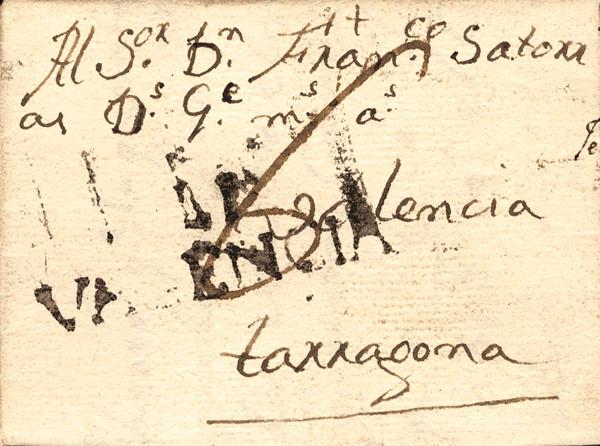 Al S.or D.n Fran.co Satorr
as D.s G.e m.s a.s
Valencia
VALENCIA
tarragona